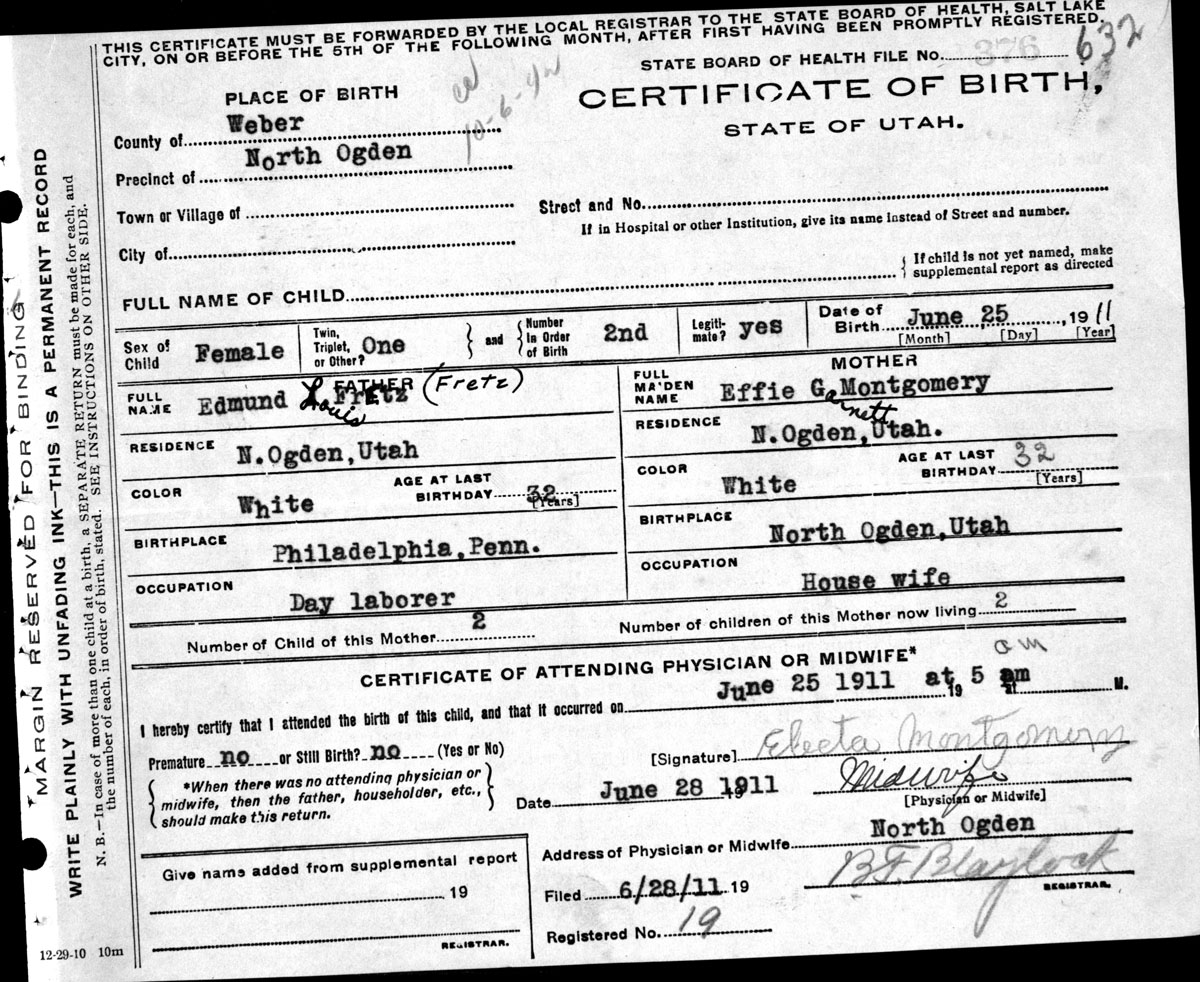 THIS CERTIFICATE MUST BE FORWARDED BY THE LOCAL REGISTRAR TO THE STATE BOARD OF HEALTH, SALT LAKE
CITY, ON OR BEFORE THE 5TH OF THE FOLLOWING MONTH, AFTER FIRST HAVING BEEN PROMPTLY REGISTERED.
STATE BOARD OF HEALTH FILE No. 376 632
10-6-42
PLACE OF BIRTH
CERTIFICATE OF BIRTH,
STATE OF UTAH.
County of Weber
Precinct of North Ogden
Town or Village of
Street and No.
If in Hospital or other Institution, give its name instead of Street and number.
City of
FULL NAME OF CHILD
If child is not yet named, make
supplemental report as directed
Sex of Child Female
Twin, Triplet, or Other? One
and Number in Order of Birth 2nd
Legiti-mate? yes
Date of Birth June 25, 1911
[Month] [Day] [Year]
FATHER
FULL NAME Edmund L. Fretz (Fretz)
Louis
RESIDENCE N.Ogden,Utah
COLOR White
AGE AT LAST BIRTHDAY 32
[Years]
BIRTHPLACE Philadelphia,Penn.
OCCUPATION Day laborer
MOTHER
FULL MAIDEN NAME Effie G Montgomery
arnett
RESIDENCE N.Ogden,Utah.
COLOR White
AGE AT LAST BIRTHDAY 32
[Years]
BIRTHPLACE North Ogden,Utah
OCCUPATION House wife
Number of Child of this Mother 2
Number of children of this Mother now living 2
CERTIFICATE OF ATTENDING PHYSICIAN OR MIDWIFE*
am
I hereby certify that I attended the birth of this child, and that it occurred on June 25 1911 19 at 5 am M.
Premature no or Still Birth? no (Yes or No)
[Signature] Electa Montgomery
*When there was no attending physician or
midwife, then the father, householder, etc.,
should make this return.
Date June 28 1911 Midwife
[Physician or Midwife]
Address of Physician or Midwife North Ogden
Give name added from supplemental report
19
REGISTRAR.
Filed 6/28/11 19 B.F. Blaylock
REGISTRAR.
Registered No. 19
12-29-10 10m
MARGIN RESERVED FOR BINDING
WRITE PLAINLY WITH UNFADING INK—THIS IS A PERMANENT RECORD
N. B.—In case of more than one child at a birth, a SEPARATE RETURN must be made for each, and
the number of each, in order of birth, stated. SEE INSTRUCTIONS ON OTHER SIDE.